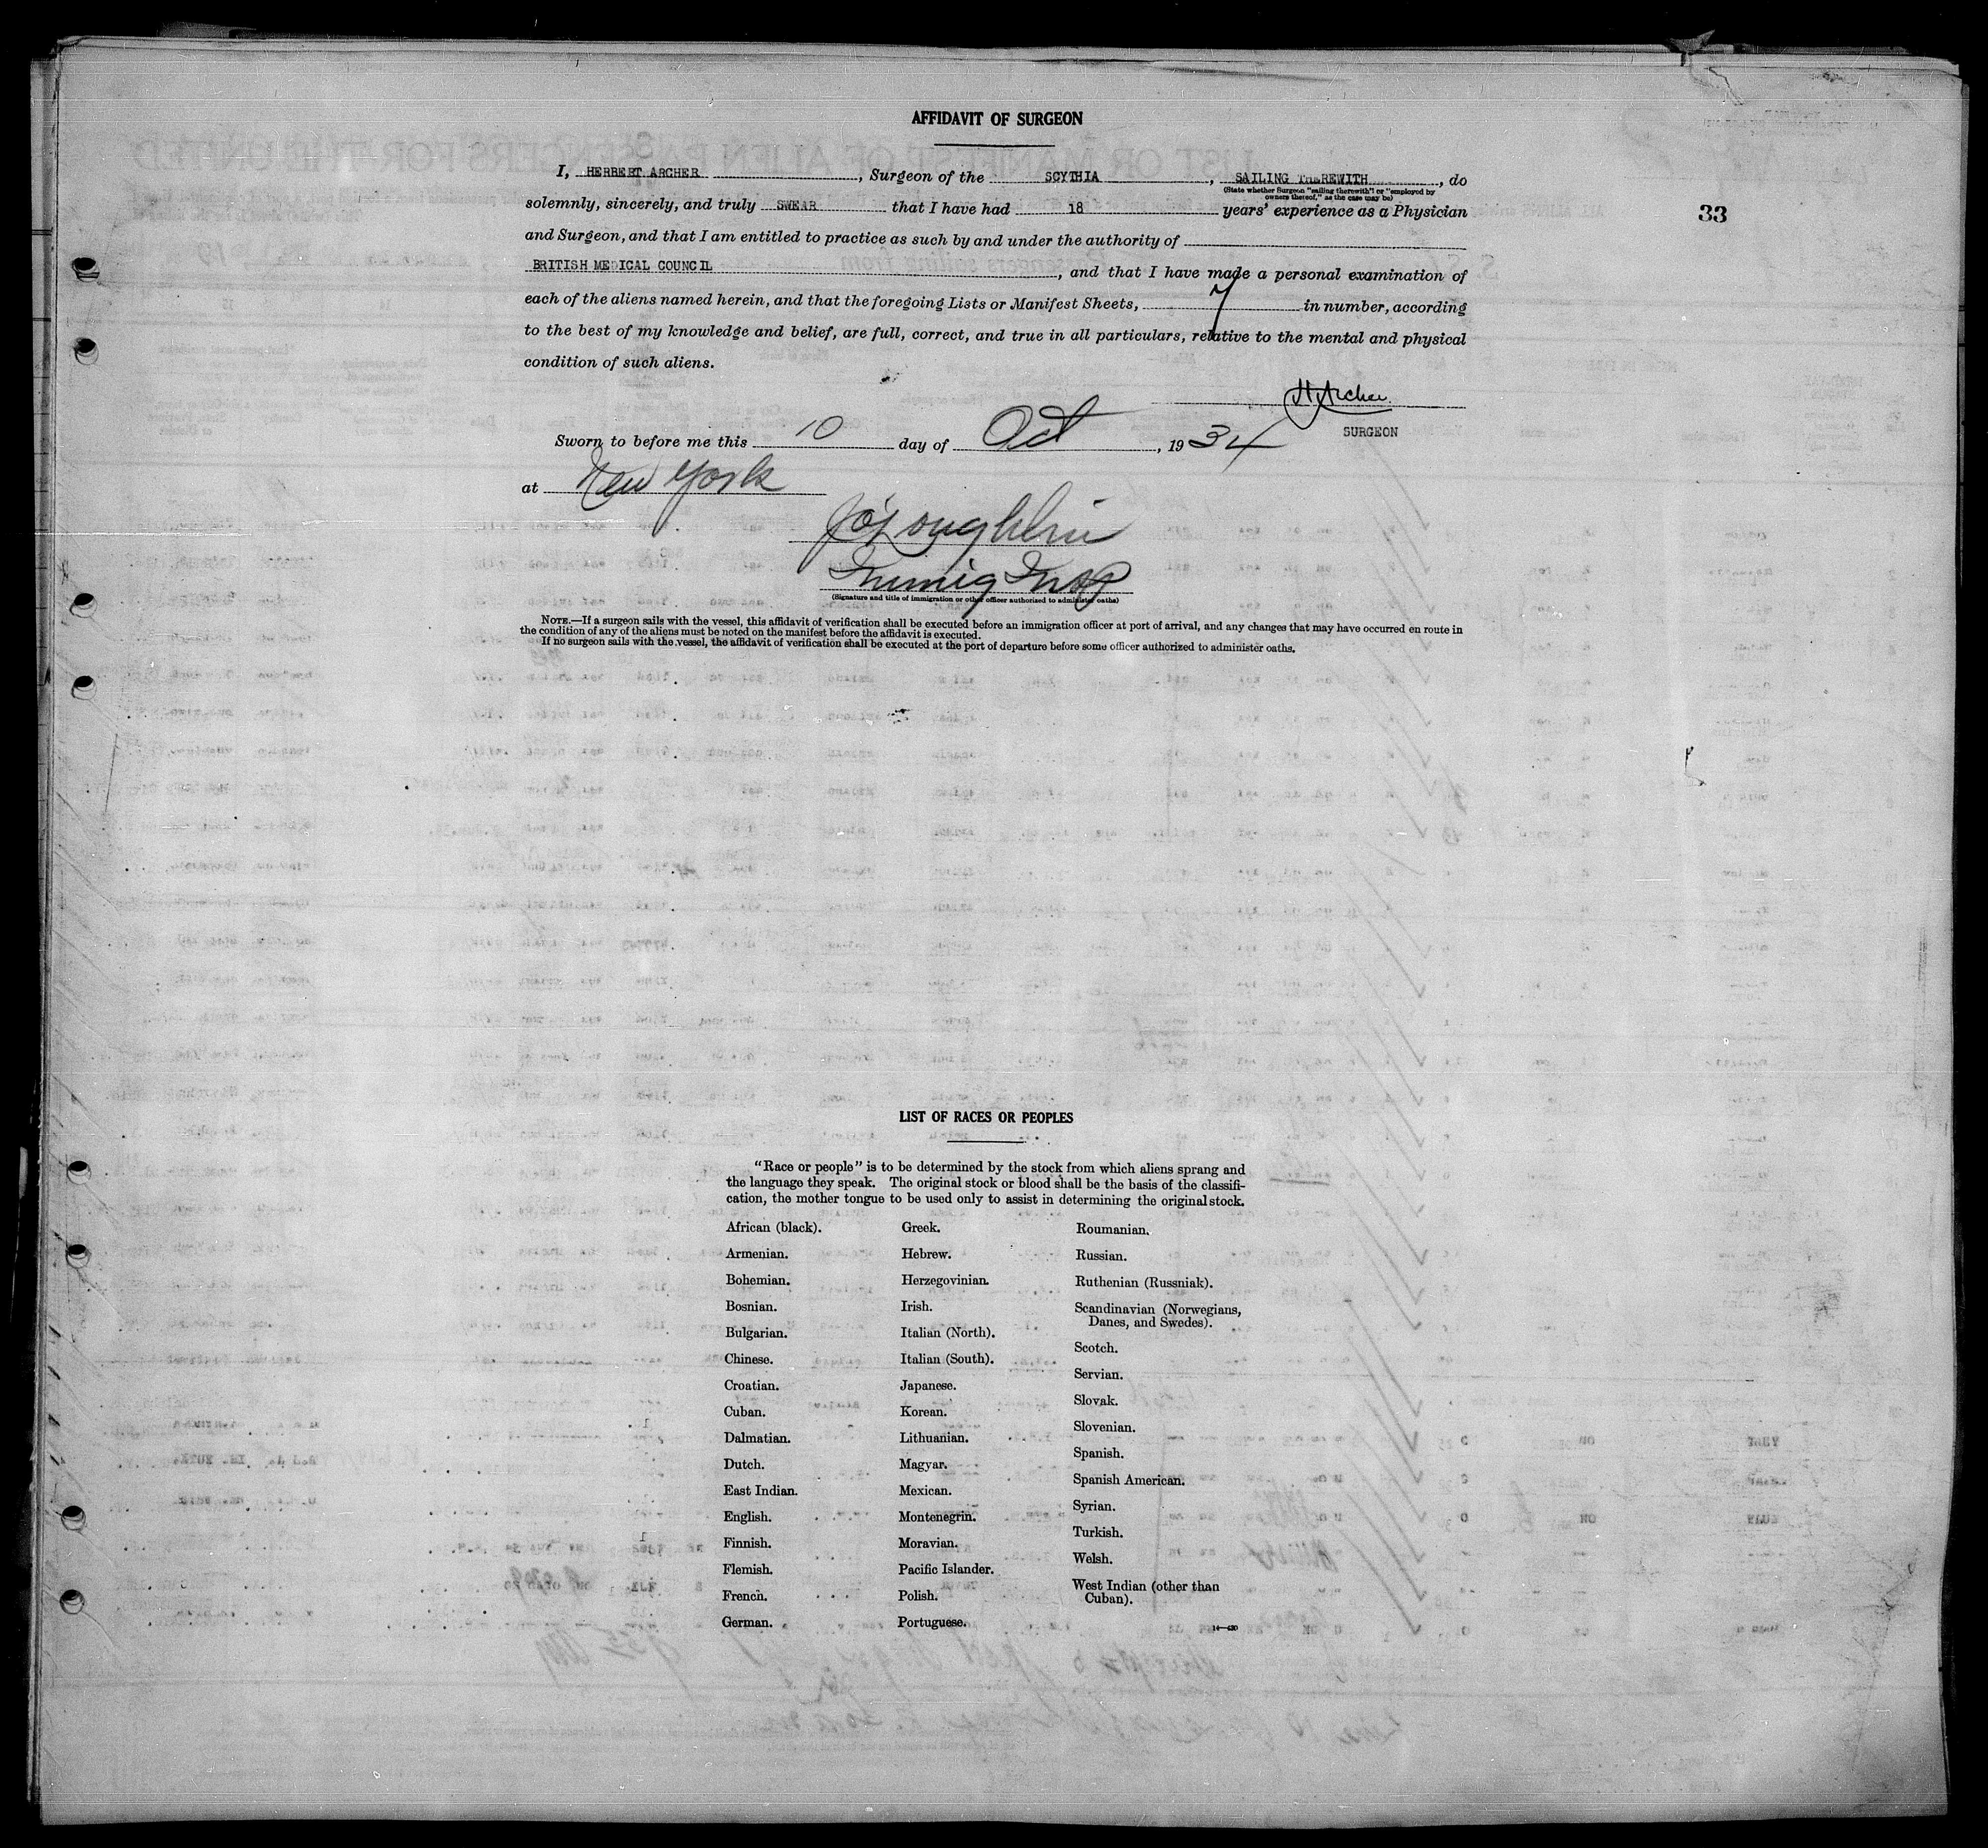 AFFIDAVIT OF SURGEON
I, HERBERT ARCHER, Surgeon of the SCYTHIA, SAILING THEREWITH, do
(State whether Surgeon "sailing therewith" or "employed by
owners thereof," as the case may be)
solemnly, sincerely, and truly SWEAR that I have had 18 years' experience as a Physician
33
and Surgeon, and that I am entitled to practice as such by and under the authority of
BRITISH MEDICAL COUNCIL, and that I have made a personal examination of
each of the aliens named herein, and that the foregoing Lists or Manifest Sheets, 7 in number, according
to the best of my knowledge and belief, are full, correct, and true in all particulars, relative to the mental and physical
condition of such aliens.
H Archer
SURGEON
Sworn to before me this 10 day of Oct, 1934
at New York
J O'Loughlin
Immig Insp
(Signature and title of immigration or other officer authorized to administer oaths)
NOTE.—If a surgeon sails with the vessel, this affidavit of verification shall be executed before an immigration officer at port of arrival, and any changes that may have occurred en route in
the condition of any of the aliens must be noted on the manifest before the affidavit is executed.
If no surgeon sails with the vessel, the affidavit of verification shall be executed at the port of departure before some officer authorized to administer oaths.
LIST OF RACES OR PEOPLES
"Race or people" is to be determined by the stock from which aliens sprang and
the language they speak. The original stock or blood shall be the basis of the classifi-
cation, the mother tongue to be used only to assist in determining the original stock.
African (black).
Armenian.
Bohemian.
Bosnian.
Bulgarian.
Chinese.
Croatian.
Cuban.
Dalmatian.
Dutch.
East Indian.
English.
Finnish.
Flemish.
French.
German.
Greek.
Hebrew.
Herzegovinian.
Irish.
Italian (North).
Italian (South).
Japanese.
Korean.
Lithuanian.
Magyar.
Mexican.
Montenegrin.
Moravian.
Pacific Islander.
Polish.
Portuguese.
Roumanian.
Russian.
Ruthenian (Russniak).
Scandinavian (Norwegians,
Danes, and Swedes).
Scotch.
Servian.
Slovak.
Slovenian.
Spanish.
Spanish American.
Syrian.
Turkish.
Welsh.
West Indian (other than
Cuban).